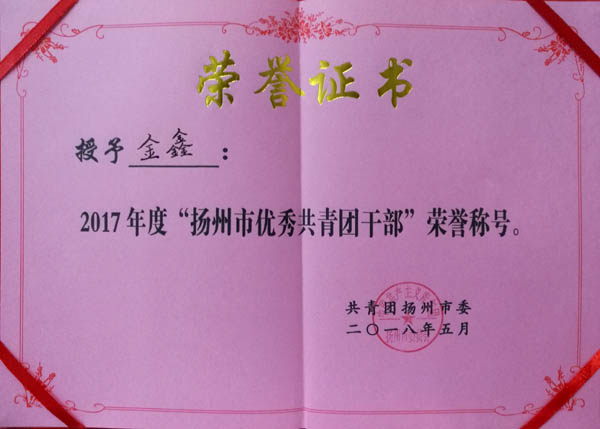 荣誉证书
授予 金鑫 ：
2017 年度“扬州市优秀共青团干部”荣誉称号。
共青团扬州市委
二〇一八年五月